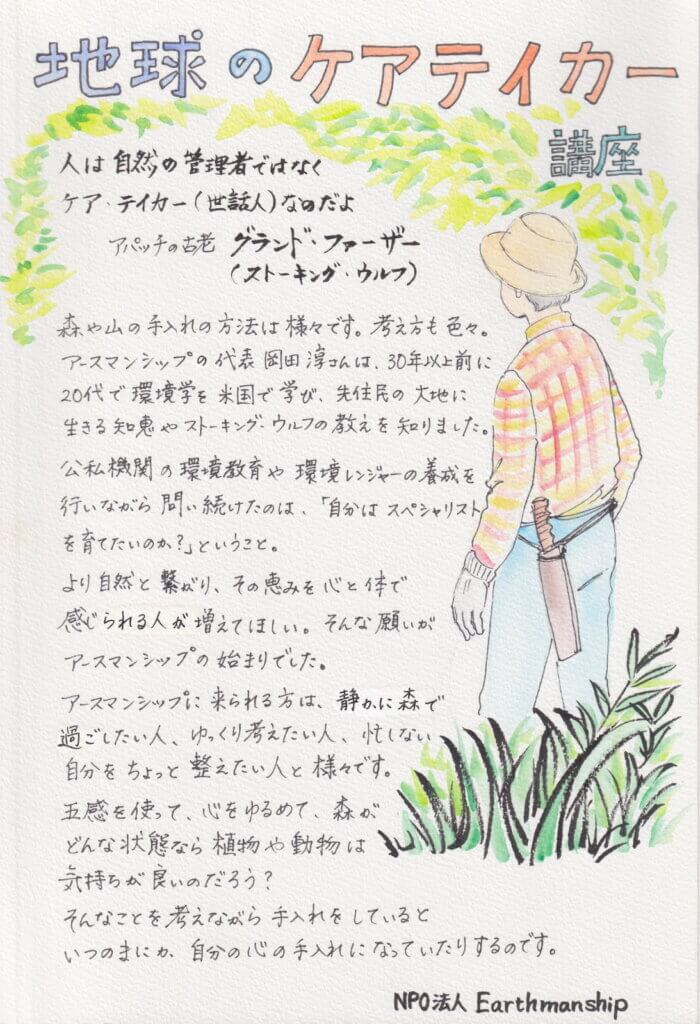 地球のケアテイカー
講座
人は自然の管理者ではなく
ケア・テイカー(世話人)なのだよ
アパッチの古老 グランド・ファーザー
(ストーキング・ウルフ)
森や山の手入れの方法は様々です。考え方も色々。
アースマンシップの代表岡田淳さんは、30年以上前に
20代で環境学を米国で学び、先住民の大地に
生きる知恵やストーキング・ウルフの教えを知りました。
公私機関の環境教育や環境レンジャーの養成を
行いながら問い続けたのは、「自分はスペシャリスト
を育てたいのか?」ということ。
より自然と繋がり、その恵みを心と体で
感じられる人が増えてほしい。そんな願いが
アースマンシップの始まりでした。
アースマンシップに来られる方は、静かに森で
過ごしたい人、ゆっくり考えたい人、忙しない
自分をちょっと整えたい人と様々です。
五感を使って、心をゆるめて、森が
どんな状態なら植物や動物は
気持ちが良いのだろう?
そんなことを考えながら手入れをしていると
いつのまにか、自分の心の手入れになっていたりするのです。
NPO法人 Earthmanship